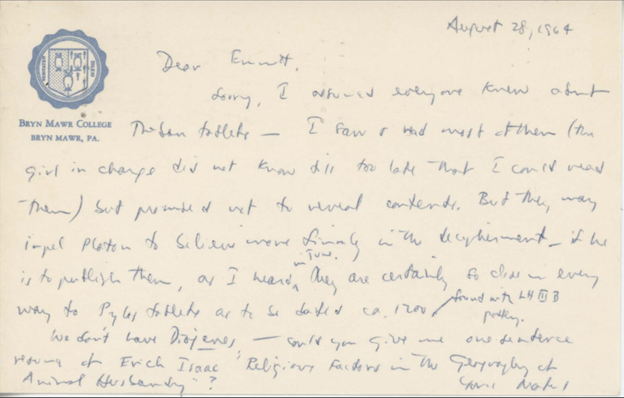 August 28, 1964
Dear Emmett,
BRYN MAWR COLLEGE
BRYN MAWR, PA.
Sorry, I assumed everyone knew about
Theban tablets — I saw & read most of them (the
girl in charge did not know till too late that I could read
them) but promised not to reveal contents. But they may
impel Platon to believe more firmly in the decipherment — if he
is to publish them, as I heard in Tuns. They are certainly so close in every
way to Pylos tablets as to be dated ca. 1200 / found with LH III B
pottery.
We don't have Diogenes — could you give me one sentence
resume of Erich Isaac "Religious Factors in the Geography of
Animal Husbandry"?